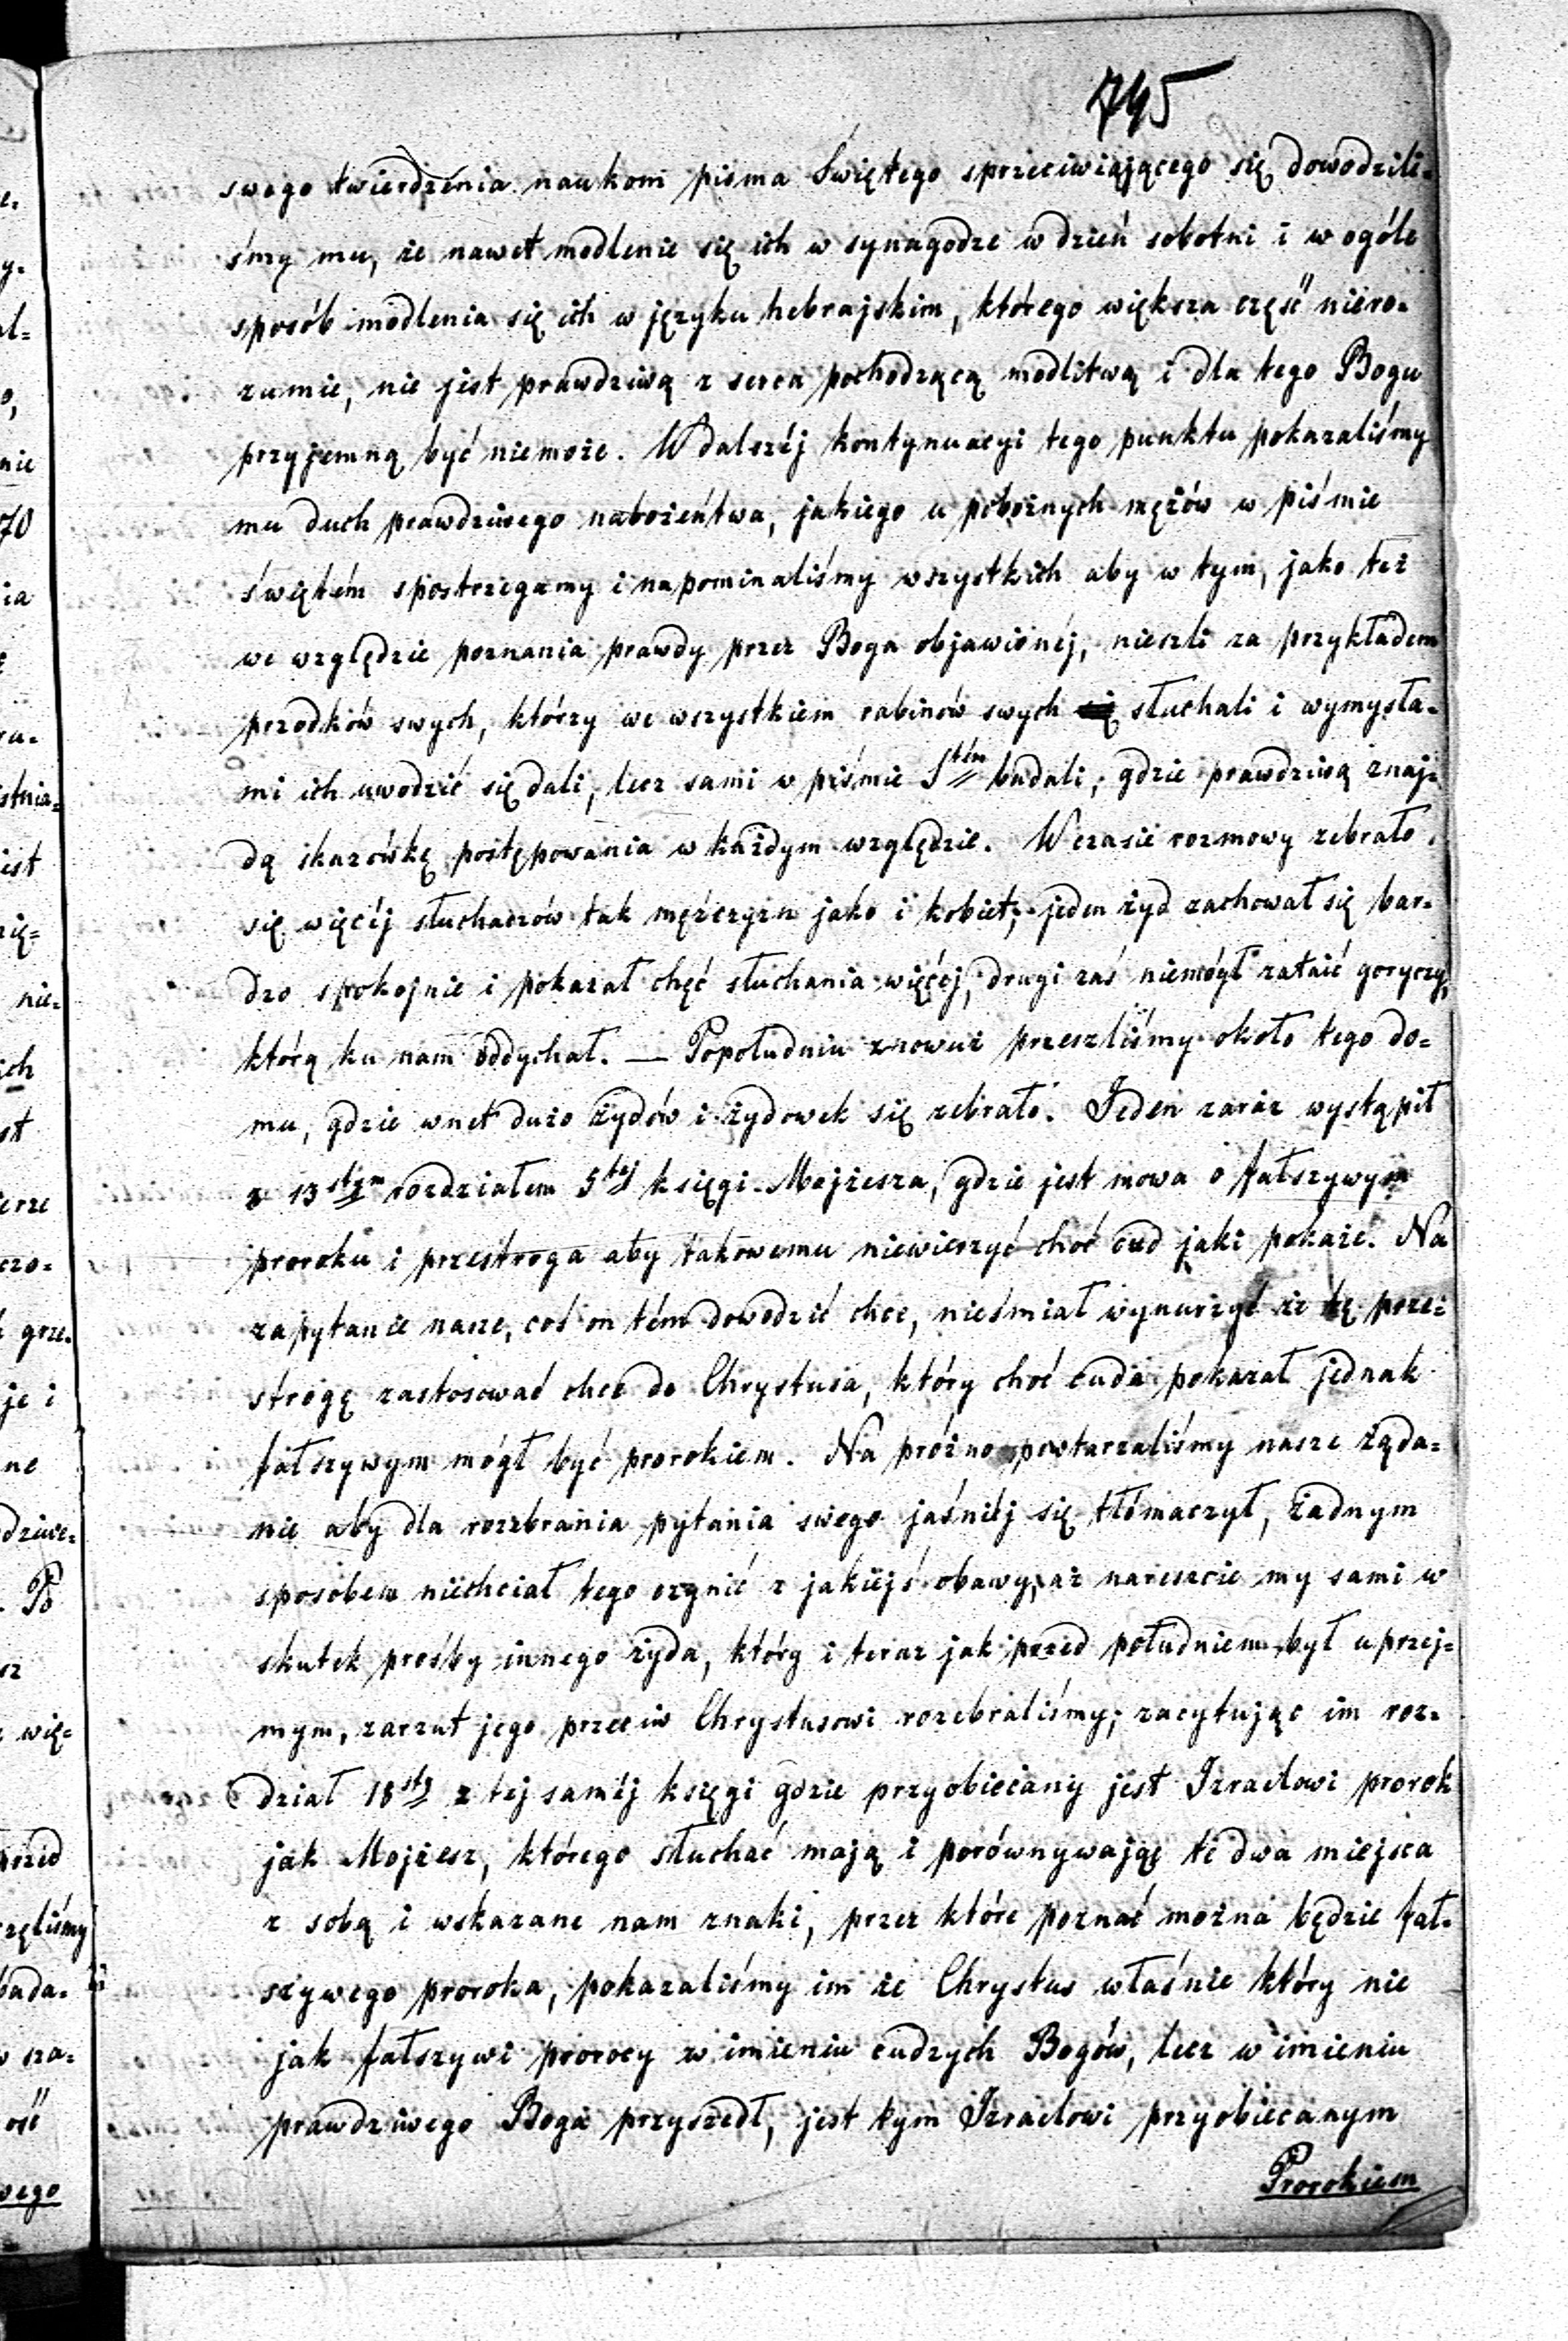 745
swego twierdzenia naukom pisma Świętego sprzeciwiającego się dowodzili-
śmy mu, że nawet modlenie się ich w synagodze w dzień sobotni i w ogóle
sposób modlenia się ich w języku hebrajskim, którego większa część niero-
zumie, nie jest prawdziwą z serca pochodzącą modlitwą i dla tego Bogu
przyjemną być niemoże. W dalszéj kontynuacyi tego punktu pokazaliśmy
mu duch prawdziwego nabożeństwa, jakiego u pobożnych mężów w piśmie
świętém spostrzegamy i napominaliśmy wszystkich aby w tym, jako też
we względzie poznania prawdy przez Boga objawionéj, nieszli za przykładem
przodków swych, którzy we wszystkiem rabinów swych słuchali i wymysła-
mi ich uwodzić się dali, lecz sami w piśmie Stém badali, gdzie prawdziwą znaj-
dą skazówkę postępowania w każdym względzie. W czasie rozmowy zebrało
się więcéj słuchaczów tak mężczyzn jako i kobiet; jeden żyd zachował się bar-
dzo spokojnie i pokazał chęć słuchania więcéj, drugi zaś niemógł zataić goryczy,
którą ku nam oddychał. — Popołudniu znowuż przeszliśmy około tego do-
mu, gdzie wnet dużo żydów i żydowek się zebrało. Jeden zaraz wystąpił
z 13stym rozdziałem 5téj księgi Mojżesza, gdzie jest mowa o fałszywym
proroku i przestroga aby takowemu niewierzyć choć cud jaki pokaże. Na
zapytanie nasze, coś on tém dowodzić chce, nieśmiał wynurzyć że tę prze-
strogę zastosować chce do Chrystusa, który choć cuda pokazał jednak
fałszywym mógł być prorokiem. Na próżno powtarzaliśmy nasze żąda-
nie aby dla rozebrania pytania swego jaśniéj się tłómaczył, żadnym
sposobem niechciał tego czynić z jakiéjś obawy, aż nareszcie my sami w
skutek prośby innego żyda, który i teraz jak przed południem był uprzej-
mym, zarzut jego przeciw Chrystusowi rozebraliśmy; zacytując im roz-
dział 18sty z tej saméj księgi gdzie przyobiecany jest Izraelowi prorok
jak Mojżesz, którego słuchać mają i porównywając te dwa miejsca
z sobą i wskazane nam znaki, przez które poznać można będzie fał-
szywego proroka, pokazaliśmy im że Chrystus właśnie który nie
jak fałszywi prorocy w imieniu cudzych Bogów, lecz w imieniu
prawdziwego Boga przyszedł, jest tym Izraelowi przyobiecanym
Prorokiem